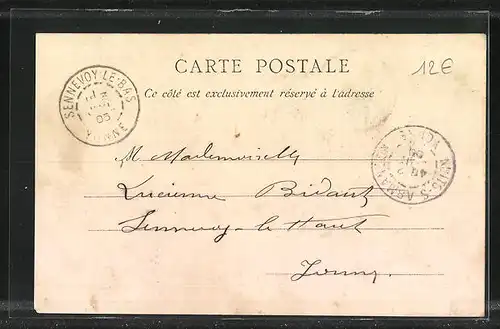 CARTE POSTALE
12€
Ce côté est exclusivement réservé à l'adresse
SENNEVOY-LE-BAS
05
YONNE
M. Mademoiselle
Lucienne Bidaut
Sennevoy-le-Haut
Yonne